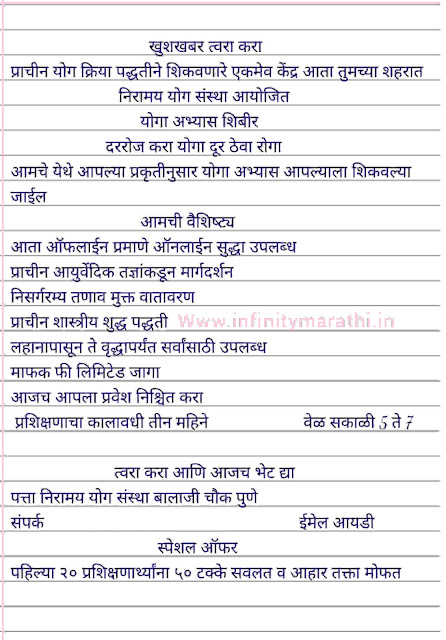 खुशखबर त्वरा करा
प्राचीन योग क्रिया पद्धतीने शिकवणारे एकमेव केंद्र आता तुमच्या शहरात
निरामय योग संस्था आयोजित
योगा अभ्यास शिबीर
दररोज करा योगा दूर ठेवा रोगा
आमचे येथे आपल्या प्रकृतीनुसार योगा अभ्यास आपल्याला शिकवल्या
जाईल
आमची वैशिष्ट्य
आता ऑफलाईन प्रमाणे ऑनलाईन सुद्धा उपलब्ध
प्राचीन आयुर्वेदिक तज्ञांकडून मार्गदर्शन
निसर्गरम्य तणाव मुक्त वातावरण
प्राचीन शास्त्रीय शुद्ध पद्धती Www.infinitymarathi.in
लहानापासून ते वृद्धापर्यंत सर्वांसाठी उपलब्ध
माफक फी लिमिटेड जागा
आजच आपला प्रवेश निश्चित करा
प्रशिक्षणाचा कालावधी तीन महिने वेळ सकाळी 5 ते 7
त्वरा करा आणि आजच भेट द्या
पत्ता निरामय योग संस्था बालाजी चौक पुणे
संपर्क ईमेल आयडी
स्पेशल ऑफर
पहिल्या २० प्रशिक्षणार्थ्यांना ५० टक्के सवलत व आहार तक्ता मोफत